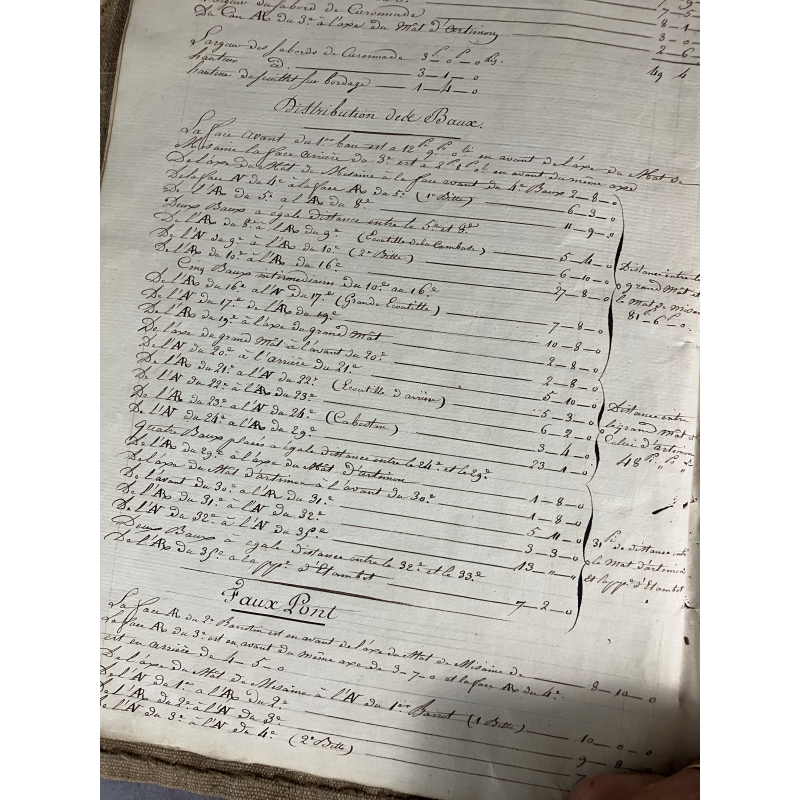 Largeur du Sabord de Caronnade
De l'an AR du 3e à l'axe du Mât d'artimon 8 — 1
3 — 0
2 — 6
Largeur des Sabords de Caronnade 3 P — 0 P — 0 lig. 49 4
hauteur id. — 3 — 1 — 0
hauteur du feuillet sur bordage — 1 — 4 — 0
Distribution des Baux.
La face avant du 1er bau est a 12 Pi 9 Po 0 li en avant de l'axe du Mat de
Misaine la face arrière du 3e est a 2 8 0 en avant du même axe
De l'axe du Mât de Misaine à la face avant du 4e Baux 2 — 8 — 0
De la face AV du 4e à la face AR du 5e (1e Bitte) 6 — 3 — 0
De l'AR du 5e a l'AR du 8e 11 — 9 — 0
Deux Baux a égale distance entre le 5e et 8e
De l'AR du 8e à l'AR du 9e (Ecoutille de la Cambuse) 5 — 4 — 0
De l'AV du 9e à l'AR du 10e (2e Bitte) 6 — 10 — 0
De l'AR du 10e à l'AR du 16e 27 — 8 — 0
Cinq Baux intermédiaires du 10e au 16e
De l'AR du 16e a l'AV du 17e (Grande Ecoutille) 7 — 8 — 0
De l'AV du 17e de l'AR du 19e 10 — 8 — 0
De l'AR du 19e à l'axe du grand Mât 2 — 8 — 0
Distance entre le
grand Mât et
le Mat de Misaine
81 — 6 — 0.
De l'axe du grand Mât à l'avant du 20e 2 — 8 — 0
De l'AV du 20e à l'arrière du 21e 5 — 10 — 0
De l'AR du 21e a l'AV du 22e (Ecoutille d'arrière) 5 — 3 — 0
De l'AV du 22e à l'AR du 23e 6 — 2 — 0
De l'AR du 23e a l'AV du 24e (Cabestan) 3 — 4 — 0
De l'AV du 24e a l'AR du 29e 23 — 1 — 0
Quatre Baux placés a égale distance entre le 24e et le 29e
De l'AR du 29e à l'axe du Mât d'artimon 1 — 8 — 0
Distance entre
le grand Mat et
Celui d'artimon
48 Pi " "
De l'axe du Mat d'artimon à l'avant du 30e 1 — 8 — 0
De l'avant du 30e a l'AR du 31e 5 — 11 — 0
De l'AR du 31e à l'AV du 32e 3 — 3 — 0
De l'AV du 32e à l'AV du 35e 13 — " — "
Deux Baux à égale distance entre le 32e et le 33e
De l'AR du 35e a la ppe d'Etambot 7 — 2 — 0
31 Pi de distance entre
le Mat d'artimon
et la ppe d'Etambot.
Faux Pont
La face AR du 2e Barrotin est en avant de l'axe du Mât de Misaine de 8 — 10 — 0
La face AR du 3e est en avant du même axe de 3 — 7 — 0 et la face AR du 4e
est en arrière de 4 — 5 — 0
De l'axe du Mât de Misaine à l'AV du 1er Barrot (1 Bitte) 10 — 0 — 0
De l'AV du 1er a l'AR du 2e 9 — 8
De l'AR du 2e à l'AV du 3e 7
De l'AV du 3e à l'AV du 4e (2e Bitte)